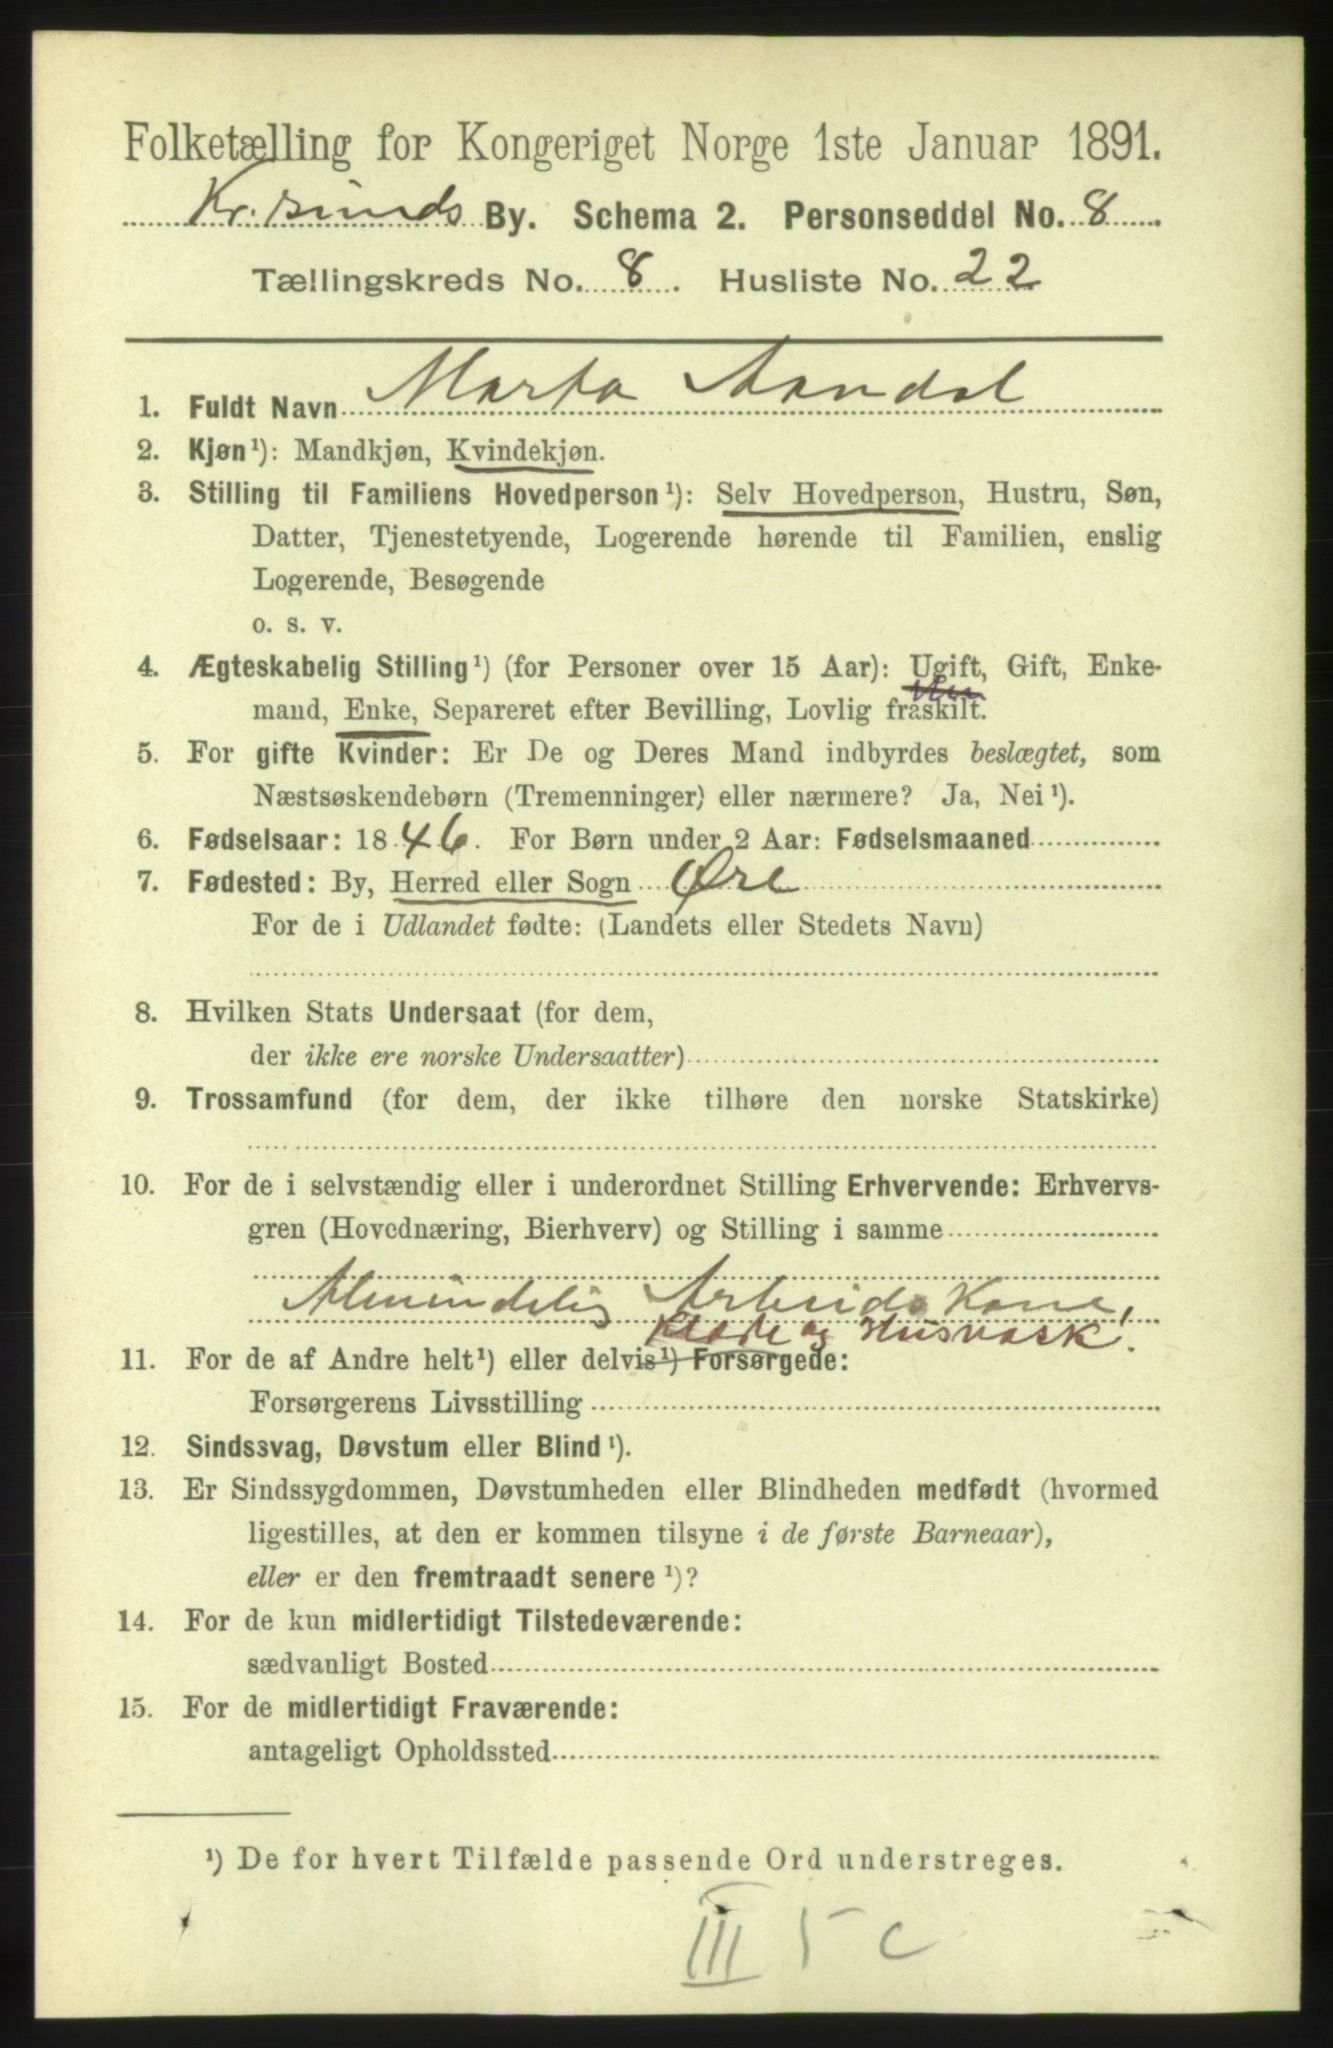 Folketælling for Kongeriget Norge 1ste Januar 1891.
Kr.sunds By. Schema 2. Personseddel No. 8
Tællingskreds No. 8. Husliste No. 22
1. Fuldt Navn Marta Aandal
2. Kjøn¹): Mandkjøn, Kvindekjøn.
3. Stilling til Familiens Hovedperson¹): Selv Hovedperson, Hustru, Søn,
Datter, Tjenestetyende, Logerende hørende til Familien, enslig
Logerende, Besøgende
o. s. v.
4. Ægteskabelig Stilling¹) (for Personer over 15 Aar): Ugift, Gift, Enke-
mand, Enke, Separeret efter Bevilling, Lovlig fraskilt.
5. For gifte Kvinder: Er De og Deres Mand indbyrdes beslægtet, som
Næstsøskendebørn (Tremenninger) eller nærmere? Ja, Nei¹).
6. Fødselsaar: 1846. For Børn under 2 Aar: Fødselsmaaned
7. Fødested: By, Herred eller Sogn Øre
For de i Udlandet fødte: (Landets eller Stedets Navn)
8. Hvilken Stats Undersaat (for dem,
der ikke ere norske Undersaatter)
9. Trossamfund (for dem, der ikke tilhøre den norske Statskirke)
10. For de i selvstændig eller i underordnet Stilling Erhvervende: Erhvervs-
gren (Hovednæring, Bierhverv) og Stilling i samme
Almindelig Arbeids Kone,
Klæde og Husvask!
11. For de af Andre helt¹) eller delvis¹) Forsørgede:
Forsørgerens Livsstilling
12. Sindssvag, Døvstum eller Blind¹).
13. Er Sindssygdommen, Døvstumheden eller Blindheden medfødt (hvormed
ligestilles, at den er kommen tilsyne i de første Barneaar),
eller er den fremtraadt senere¹)?
14. For de kun midlertidigt Tilstedeværende:
sædvanligt Bosted
15. For de midlertidigt Fraværende:
antageligt Opholdssted
¹) De for hvert Tilfælde passende Ord understreges.
III 5 c